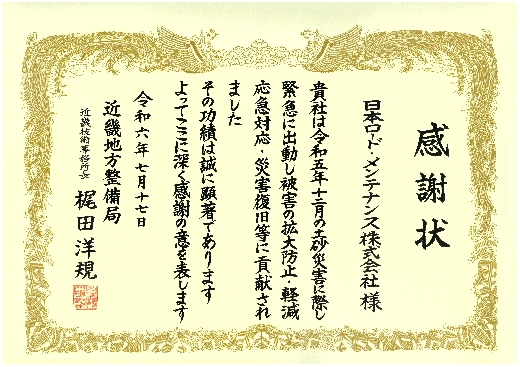 感謝状
日本ロード・メンテナンス株式会社 様
貴社は令和五年十二月の土砂災害に際し
緊急に出動し被害の拡大防止・軽減
応急対応・災害復旧等に貢献され
ました
その功績は誠に顕著であります
よってここに深く感謝の意を表します
令和六年七月十七日
近畿地方整備局
近畿技術事務所長 梶田洋規